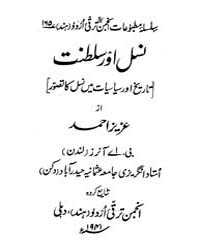 سلسلۂ مطبوعات انجمن ترقی اُردو (ہند) ۱۶۵
نسل اور سلطنت
[تاریخ اور سیاسیات میں نسل کا تصور]
از
عزیز احمد
بی۔ اے آنرز (لندن)
اُستاد انگریزی جامعہ عثمانیہ حیدرآباد دکن
شایع کردہ
انجمن ترقی اُردو (ہند)، دہلی
۱۹۴۱ء